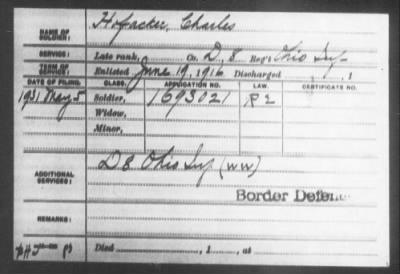 NAME OF SOLDIER: Hofacker, Charles
SERVICE: Late rank, Co. D, 8 Reg't Ohio Inf
TERM OF SERVICE: Enlisted June 19, 1916 Discharged , 1
DATE OF FILING. CLASS. APPLICATION NO. LAW. CERTIFICATE NO.
1931 May 5 Soldier, 1693021 R2
Widow,
Minor,
ADDITIONAL SERVICES: D 8 Ohio Inf (WW)
Border Defense
REMARKS:
Died , 1 , at